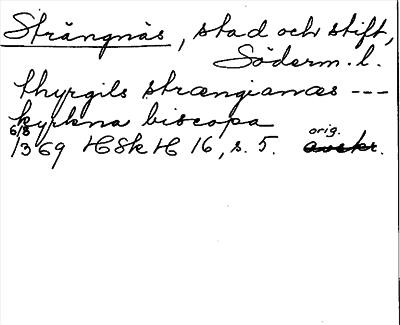 Strängnäs, stad och stift,
Söderm. l.
thyrgils strængianæs ---
kyrkna biscopa
6/8 1369 HSk H 16, s. 5. orig. avskr.